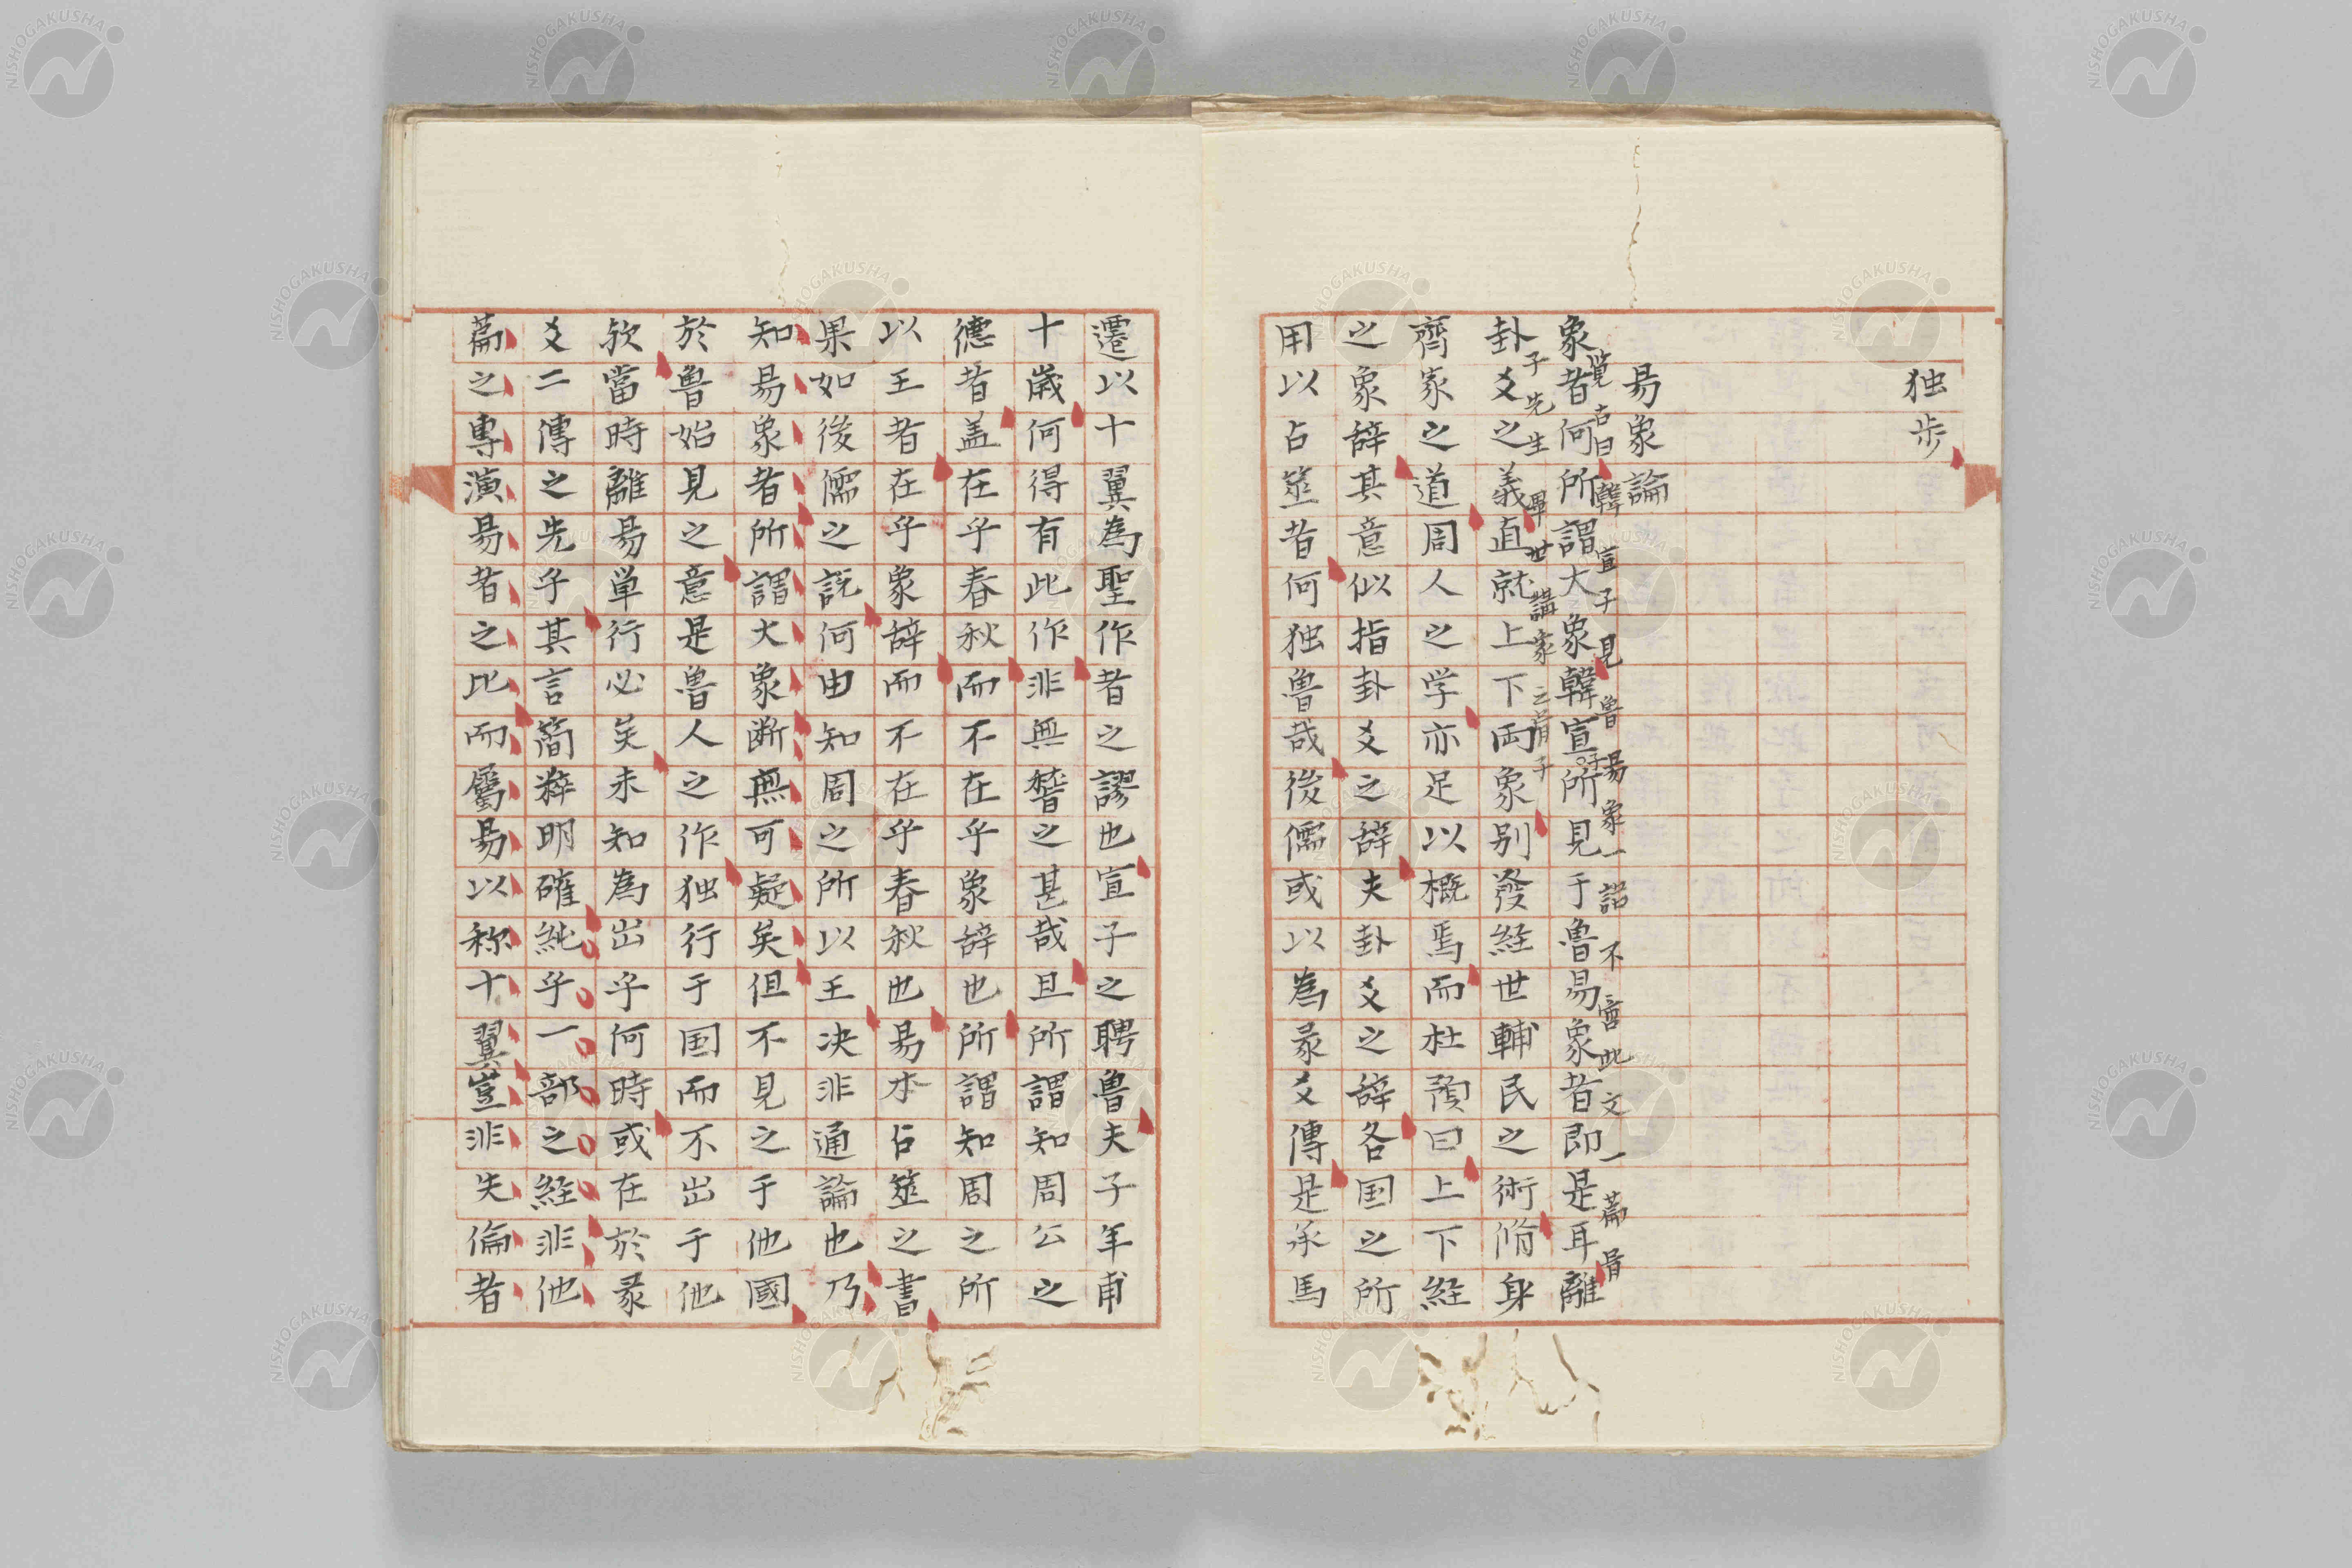 独歩
易象論
覚古曰韓宣子見魯易象一語不啻此文一篇骨
象者何所謂大象韓宣子所見于魯易象者即是耳離
子先生畢世講家
卦爻之義直就上下両象別發経世輔民之術脩身
齊家之道周人之学亦足以概焉而杜預曰上下経
之象辞其意似指卦爻之辞夫卦爻之辞各国之所
用以占筮者何独魯哉後儒或以為彖爻傳是承馬
遷以十翼為聖作者之謬也宣子之聘魯夫子年甫
十歳何得有此作非無稽之甚哉且所謂知周公之
德者盖在乎春秋而不在乎象辞也所謂知周之所
以王者在乎象辞而不在乎春秋也易本占筮之書
果如後儒之説何由知周之所以王决非通論也乃
知易象者所謂大象断無可疑矣但不見之于他國
於魯始見之意是魯人之作独行于国而不出于他
欤當時離易単行必矣未知為出乎何時或在於彖
爻二傳之先乎其言簡粹明確純乎一部之経非他
篇之專演易者之比而屬易以称十翼豈非失倫者